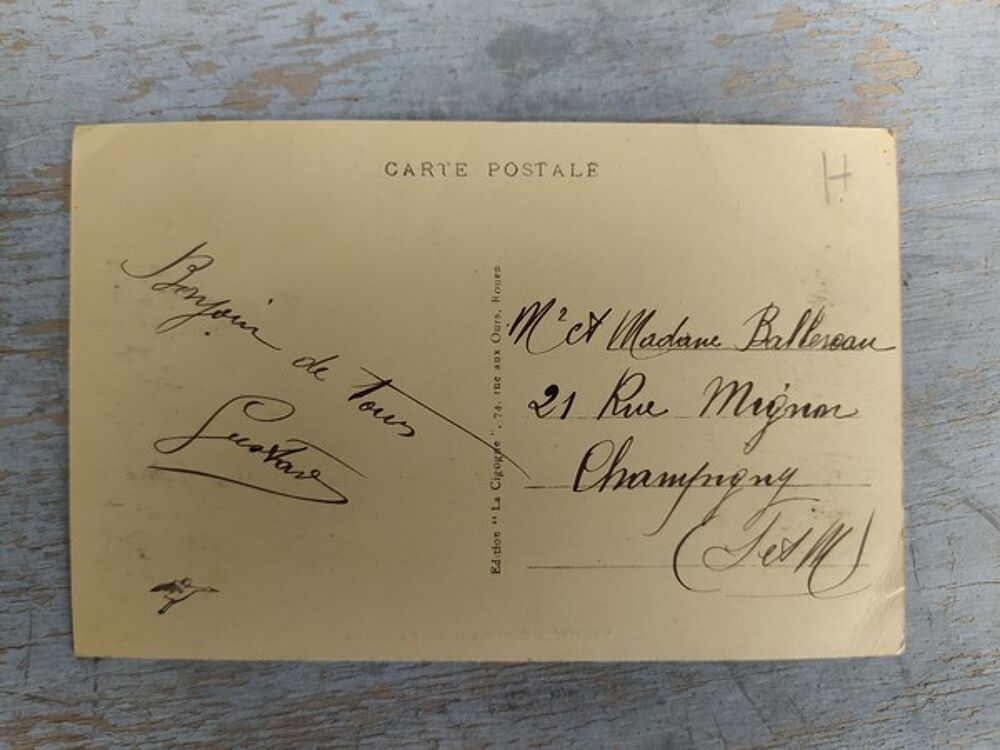 CARTE POSTALE
H
Bonjour
de Tous
Gustave
Edition "La Cigogne", 74, rue aux Ours, Rouen
Mr et Madame
21 Rue Mignon
Champigny
(S et M)